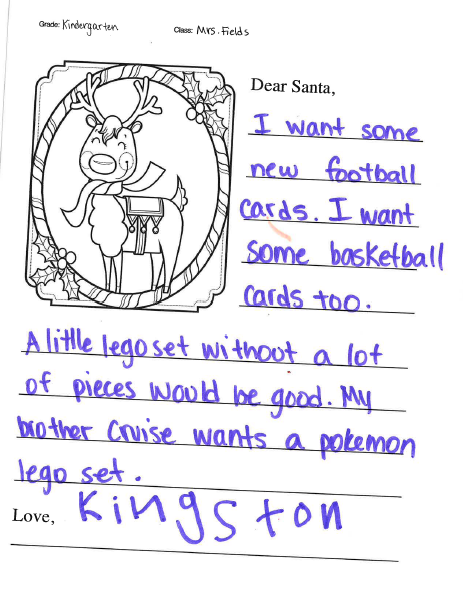 Grade: Kindergarten Class: Mrs. Fields
Dear Santa,
I want some
new football
cards. I want
some basketball
cards too.
A little lego set without a lot
of pieces would be good. My
brother Cruise wants a pokemon
lego set.
Love, Kingston